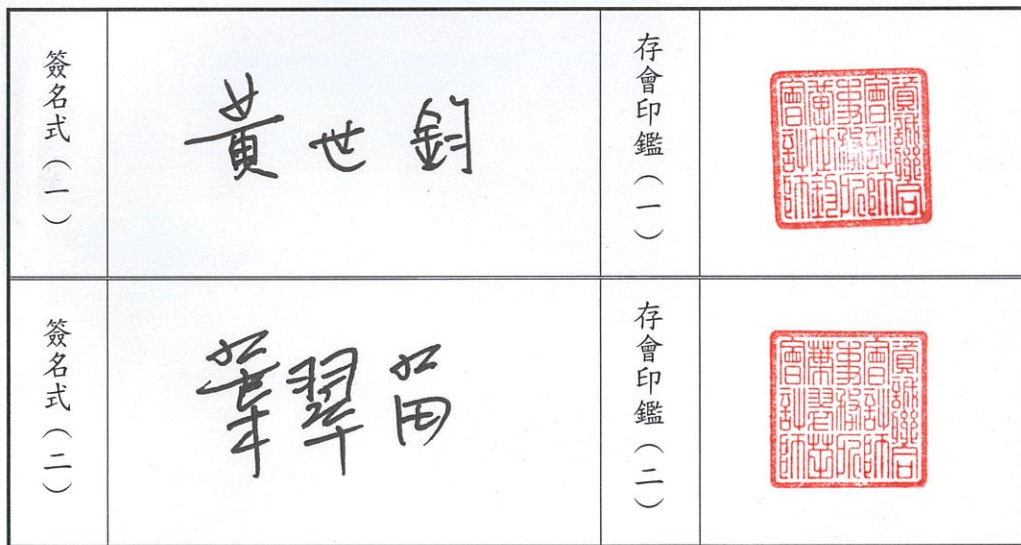 簽名式（一）
黃世鈞
存會印鑑（一）
資誠聯合
會計師
事務所
黃世鈞
會計師
簽名式（二）
葉翠苗
存會印鑑（二）
資誠聯合
會計師
事務所
葉翠苗
會計師